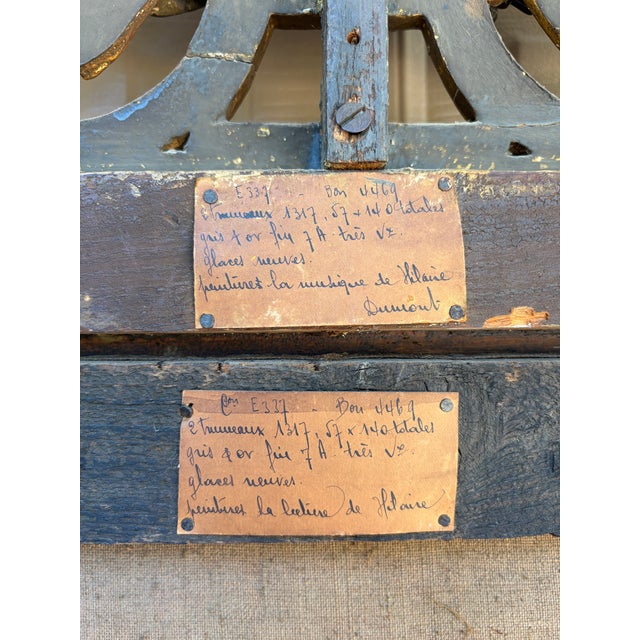 E337 - Bon 4469
2 trumeaux 1317, 57 x 140 totales
gris & or fin 7 A très Vx.
glaces neuves.
peintures la musique de Hilaire
Dumont
Con E337 - Bon 4469
2 trumeaux 1317, 57 x 140 totales
gris & or fin 7 A très Vx.
glaces neuves.
peintures la lecture de Hilaire